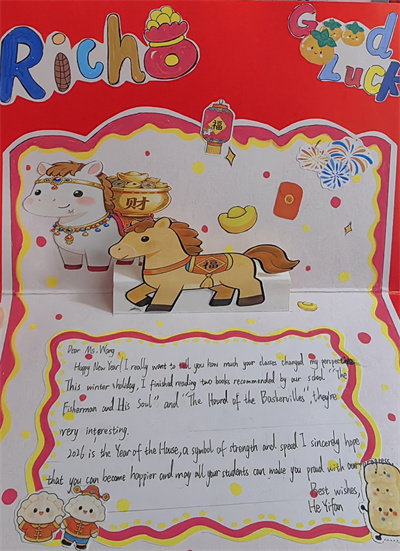 Rich
Good
Luck
福
财
福
Dear Ms. Wang,
Happy New Year! I really want to tell you how much your classes changed my perspective.
This winter holiday, I finished reading two books recommended by our school "The
Fisherman and His Soul" and "The Hound of the Baskervilles", they're
very interesting.
2026 is the Year of the House, a symbol of strength and speed I sincerely hope
that you can become happier and may all your students can make you proud with our progress.
Best wishes,
He Yifan